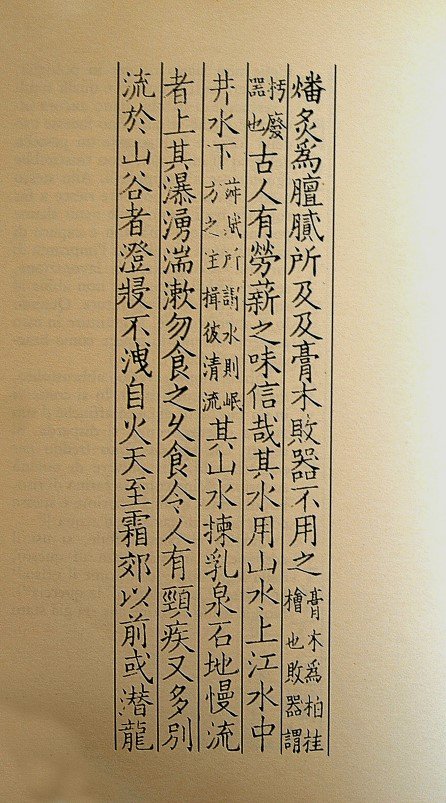 燔炙爲膻膩所及及膏木敗器不用之膏木爲柏桂檜也敗器謂
杇廢器也古人有勞薪之味信哉其水用山水上江水中
井水下荈賦所謂水則岷方之主揖彼清流其山水揀乳泉石地慢流
者上其瀑湧湍漱勿食之久食令人有頸疾又多別
流於山谷者澄不洩自火天至霜郊以前或潛龍